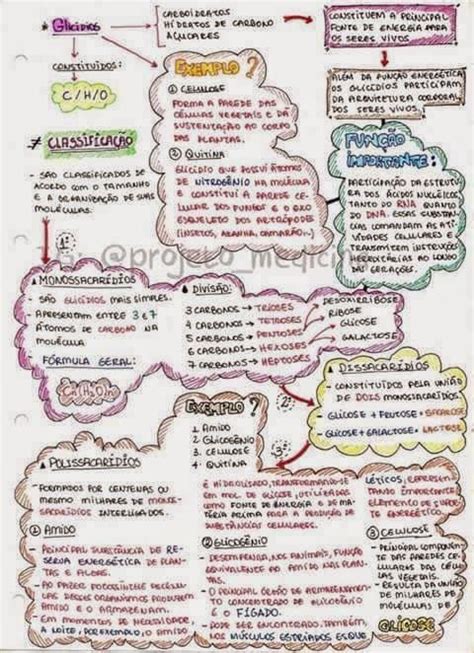 * Glicídios
CARBOIDRATOS
HIDRATOS DE CARBONO
AÇUCARES
CONSTITUEM A PRINCIPAL
FONTE DE ENERGIA PARA
OS SERES VIVOS
CONSTITUÍDOS:
C/H/O
EXEMPLO ?
① CELULOSE
FORMA A PAREDE DAS
CÉLULAS VEGETAIS E DÁ
SUSTENTAÇÃO AO CORPO
DAS PLANTAS.
② QUITINA
GLICÍDIO QUE POSSUÍ ÁTOMOS
DE NITROGÊNIO NA MOLÉCULA
E CONSTITUÍ A PAREDE CE-
LULAR DOS FUNGOS E O EXO
ESQUELETO DOS ARTRÓPODES
(INSETOS, ARANHA, CAMARÃO...)
ALÉM DA FUNÇÃO ENERGÉTICA
OS GLICÍDIOS PARTICIPAM
DA ARQUITETURA CORPORAL
DOS SERES VIVOS.
≠ CLASSIFICAÇÃO
- SÃO CLASSIFICADOS DE
ACORDO COM O TAMANHO
E A ORGANIZAÇÃO DE SUAS
MOLÉCULAS.
FUNÇÃO
IMPORTANTE:
PARTICIPAÇÃO DA ESTRUTU-
RA DOS ÁCIDOS NUCLÉICOS
TANTO DO RNA QUANTO
DO DNA. ESSAS SUBSTÂN-
CIAS COMANDAM AS ATI-
VIDADES CELULARES E
TRANSMITEM INSTRUÇÕES
HEREDITÁRIAS AO LONGO
DAS GERAÇÕES.
@projeto_medicin
1ª
▲ MONOSSACARÍDIOS
- SÃO GLICÍDIOS MAIS SIMPLES.
- APRESENTAM ENTRE 3 E 7
ÁTOMOS DE CARBONO NA
MOLÉCULA
- FÓRMULA GERAL:
Cn(H₂O)n
▲ DIVISÃO:
3 CARBONOS → TRIOSES
4 CARBONOS → TETROSES
5 CARBONOS → PENTOSES
6 CARBONOS → HEXOSES
7 CARBONOS → HEPTOSES
DESOXIRRIBOSE
RIBOSE
GLICOSE
GALACTOSE
2ª
▲ DISSACARÍDIOS
- CONSTITUÍDOS PELA UNIÃO
DE DOIS MONOSSACARÍDIOS
GLICOSE + FRUTOSE = SACAROSE
GLICOSE + GALACTOSE = LACTOSE
3ª
EXEMPLO ?
1. AMIDO
2. GLICOGÊNIO
3. CELULOSE
4. QUITINA
▲ POLISSACARÍDIOS
- FORMADOS POR CENTENAS OU
MESMO MILHARES DE MONOS-
SACARÍDIOS INTERLIGADOS.
① AMIDO
- PRINCIPAL SUBSTÂNCIA DE RE-
SERVA ENERGÉTICA DE PLAN-
TAS E ALGAS.
- AO FAZER FOTOSSÍNTESE AS CÉLU-
LAS DESSES ORGANISMOS PRODUZEM
AMIDO E O ARMAZENAM.
- EM MOMENTOS DE NECESSIDADE,
A NOITE, POR EXEMPLO, O AMIDO
É HIDROLISADO, TRANSFORMANDO-SE
EM MOL. DE GLICOSE, UTILIZADAS
COMO FONTE DE ENERGIA E DE MA-
TÉRIA PRIMA PARA A PRODUÇÃO DE
SUBSTÂNCIAS CELULARES.
② GLICOGÊNIO
- DESEMPENHA, NOS ANIMAIS, FUNÇÃO
EQUIVALENTE AO AMIDO NAS PLAN-
TAS.
- O PRINCIPAL ÓRGÃO DE ARMAZENAMEN-
TO CONCENTRADO DE GLICOGÊNIO
É O FÍGADO.
- PODE SER ENCONTRADO, TAMBÉM
NOS MÚSCULOS ESTRIADOS ESQUE-
LÉTICOS, REPRESEN-
TANDO IMPORTANTE
ELEMENTO DE SUPOR-
TE ENERGÉTICO.
③ CELULOSE
- PRINCIPAL COMPONEN-
TE DAS PAREDES
CELULARES DAS CÉ-
LULAS VEGETAIS.
- RESULTA DA UNIÃO
DE MILHARES DE
MOLÉCULAS DE
GLICOSE